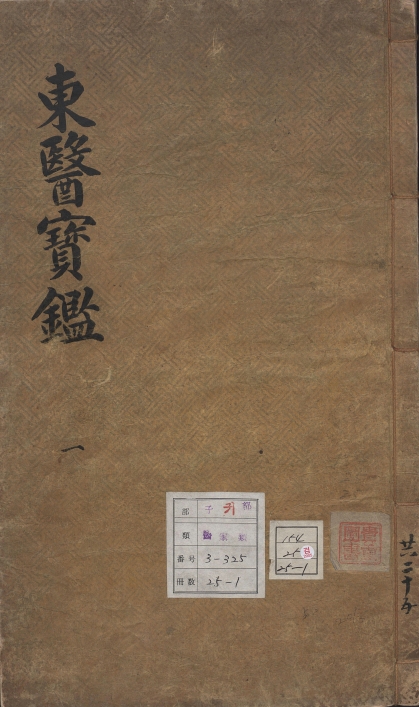 東醫寶鑑
一
共二十五
部 子
類 醫家類
番号 3-325
冊数 25-1
154
25
25-1